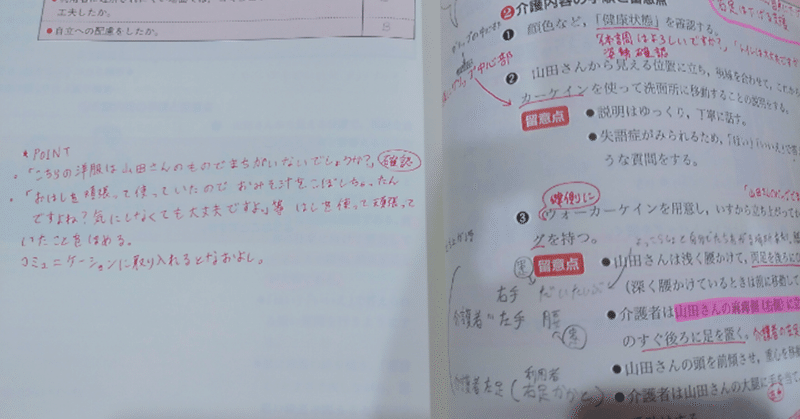 工夫したか。
●自立への配慮をしたか。
8
*POINT
・「こちらの洋服は山田さんのものでまちがいないでしょうか?」確認
・「おはしを頑張って使っていたので おみそ汁をこぼしちゃったん
ですよね?気にしなくても大丈夫ですよ」等 はしを使って頑張って
いたことをほめる。
コミュニケーションに取り入れるとなおよし。
❷介護内容の手順と留意点
❶ 顔色など,「健康状態」を確認する。
体調はよろしいですか?
姿勢確認
中心部
❷ 山田さんから見える位置に立ち,目線を合わせて,これから
カーケインを使って洗面所に移動することの説明をする。
留意点
●説明はゆっくり,丁寧に話す。
●失語症がみられるため,「はい」「いいえ」で答
うな質問をする。
健側に
❸ ウォーカーケインを用意し,いすから立ち上がってか
グを持つ。
留意点
●山田さんは浅く腰かけて,両足を後ろにな
(深く腰かけているときは前に移動して
右手 だいたいぶ
介護者 左手 腰
●介護者は山田さんの麻痺側(右側)に立
のすぐ後ろに足を置く。
●山田さんの頭を前傾させ,重心を移
介護者左足(利用者
右足かかと)
●介護者は山田さんの大腿に手を当て